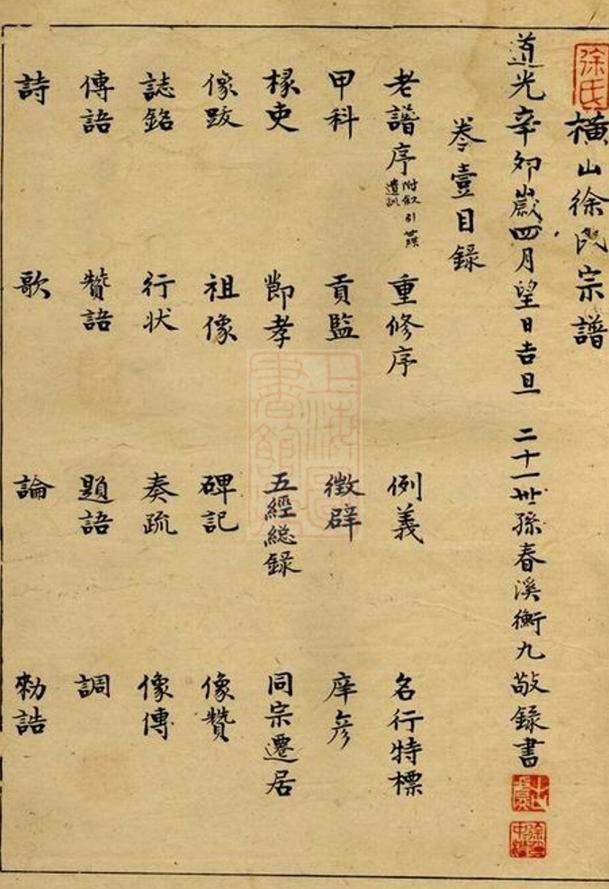 徐氏
橫山徐氏宗譜
道光辛卯歲四月望日吉旦 二十一世孫春溪衡九敬錄書
卷壹目錄
老譜序 附叙引 遺訓 重修序 例義 名行特標
甲科 貢監 徵辟 庠彦
椽吏 節孝 五經總録 同宗遷居
像跋 祖像 碑記 像贊
誌銘 行状 奏疏 像傳
傳語 贊語 題語 調
詩 歌 論 勅誥
上海圖書館藏